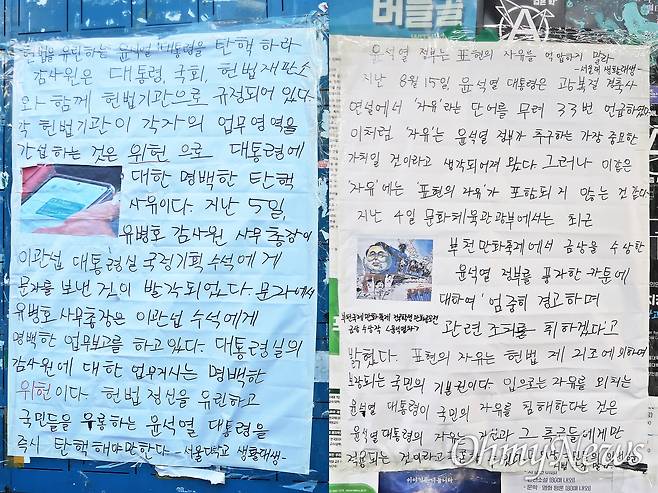 헌법을 유린하는 윤석열 대통령을 탄핵하라
감사원은 대통령, 국회, 헌법재판소
와 함께 헌법기관으로 규정되어 있다.
각 헌법기관이 각자의 업무영역을
간섭하는 것은 위헌으로 대통령에
대한 명백한 탄핵
사유이다. 지난 5일,
유병호 감사원 사무총장이
이관섭 대통령실 국정기획 수석에게
문자를 보낸 것이 발각되었다. 문자에서
유병호 사무총장은 이관섭 수석에게
명백한 업무보고를 하고 있다. 대통령실의
감사원에 대한 업무지시는 명백한
위헌이다. 헌법 정신을 유린하고
국민들을 우롱하는 윤석열 대통령을
즉시 탄핵해야만한다. -서울대학교 생활대생-
버들골
윤석열 정부는 표현의 자유를 억압하지 말라
-서울대 생활대생-
지난 8월 15일, 윤석열 대통령은 광복절 경축사
연설에서 '자유'라는 단어를 무려 33번 언급하였다
이처럼 '자유'는 윤석열 정부가 추구하는 가장 중요한
가치일 것이라고 생각되어져 왔다. 그러나 이들은
'자유'에는 '표현의 자유'가 포함되지 않는 것 같다
지난 4일 문화체육관광부에서는 최근
부천만화축제에서 금상을 수상한
윤석열 정부를 풍자한 카툰에
대하여 '엄중히 경고하며
부천국제만화축제 전국학생만화공모전
금상 수상작 <윤석열차>
관련 조치를 취하겠다'고
밝혔다. 표현의 자유는 헌법 제 21조에 의하여
보장되는 국민의 기본권이다. 입으로는 자유를 외치는
윤석열 대통령이 국민의 자유를 침해한다는 것은
윤석열 대통령의 자유는 그 측근들에게만
적용되는 것이라고
OhmyNews